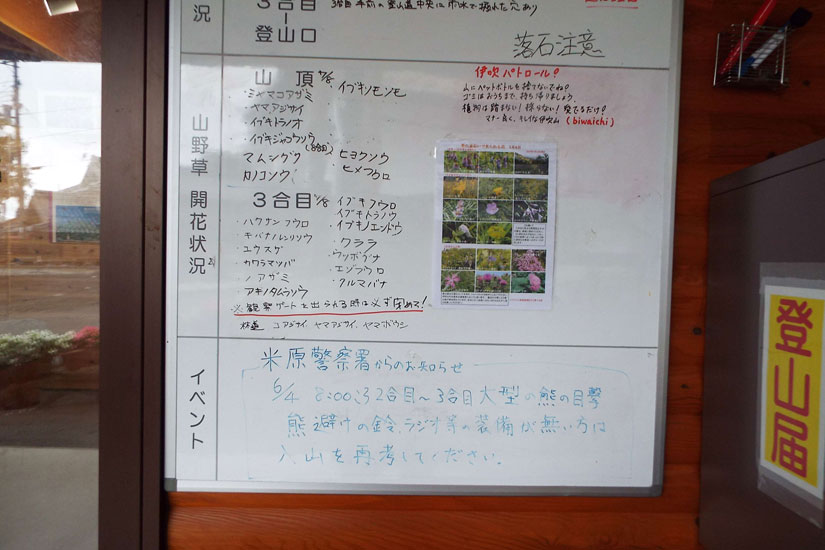 況
3合目
登山口
3合目手前の登山道中央に雨水で掘れた穴あり
落石注意
山野草 開花状況
山頂 7/8
イブキノモソモ
・ミヤマコアザミ
・ヤマアジサイ
・イブキトラノオ
・イブキジャコウソウ(8合目)
マムシグサ ヒヨクソウ
カノコソウ ・ヒメフウロ
伊吹パトロール!
山にペットボトルを捨てないでね!
ゴミはおうちまで、持ち帰りましょう
植物は踏まない!採らない!愛でるだけ!
マナー良く、キレイな伊吹山 (biwaichi)
3合目 7/8
イブキフウロ
イブキトラノウ
・イブキノエンドウ
・ハクサンフウロ
・キバナノレンリソウ
・クララ
・ユウスゲ
・ウツボグサ
・カワラマツバ
・エゾフウロ
・ノアザミ
・クルマバナ
・アキノタムラソウ
※観察ゲートを出られる時は必ず閉めて!
林道 コアジサイ、ヤマアジサイ、ヤマボウシ
イベント
米原警察署からのお知らせ
6/4 8:00ころ2合目~3合目大型の熊の目撃
熊避けの鈴、ラジオ等の装備が無い方は
入山を再考してください。
登山届